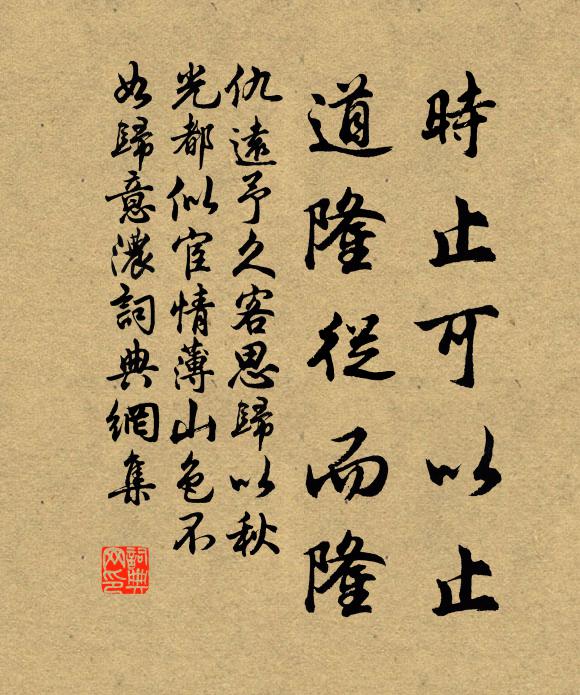 時止可以止
道隆從而隆
仇遠予久客思歸以秋
光都似宦情薄山色不
如歸意濃詞典網集
詞典
网印